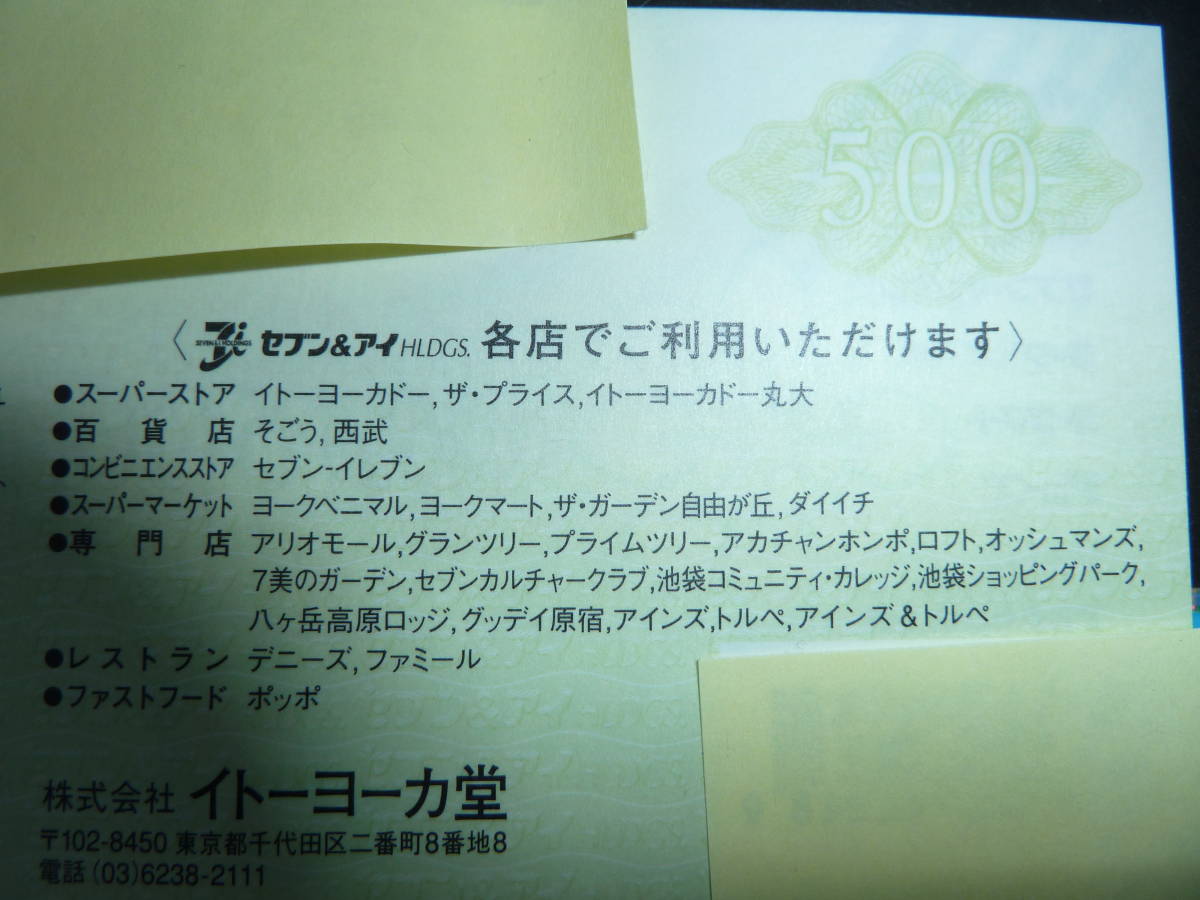 500
〈 SEVEN & i HOLDINGS セブン&アイ HLDGS. 各店でご利用いただけます〉
●スーパーストア イトーヨーカドー,ザ・プライス,イトーヨーカドー丸大
●百貨店 そごう,西武
●コンビニエンスストア セブン-イレブン
●スーパーマーケット ヨークベニマル,ヨークマート,ザ・ガーデン自由が丘,ダイイチ
●専門店 アリオモール,グランツリー,プライムツリー,アカチャンホンポ,ロフト,オッシュマンズ,
7美のガーデン,セブンカルチャークラブ,池袋コミュニティ・カレッジ,池袋ショッピングパーク,
八ヶ岳高原ロッジ,グッデイ原宿,アインズ,トルペ,アインズ&トルペ
●レストラン デニーズ,ファミール
●ファストフード ポッポ
株式会社 イトーヨーカ堂
〒102-8450 東京都千代田区二番町8番地8
電話(03)6238-2111